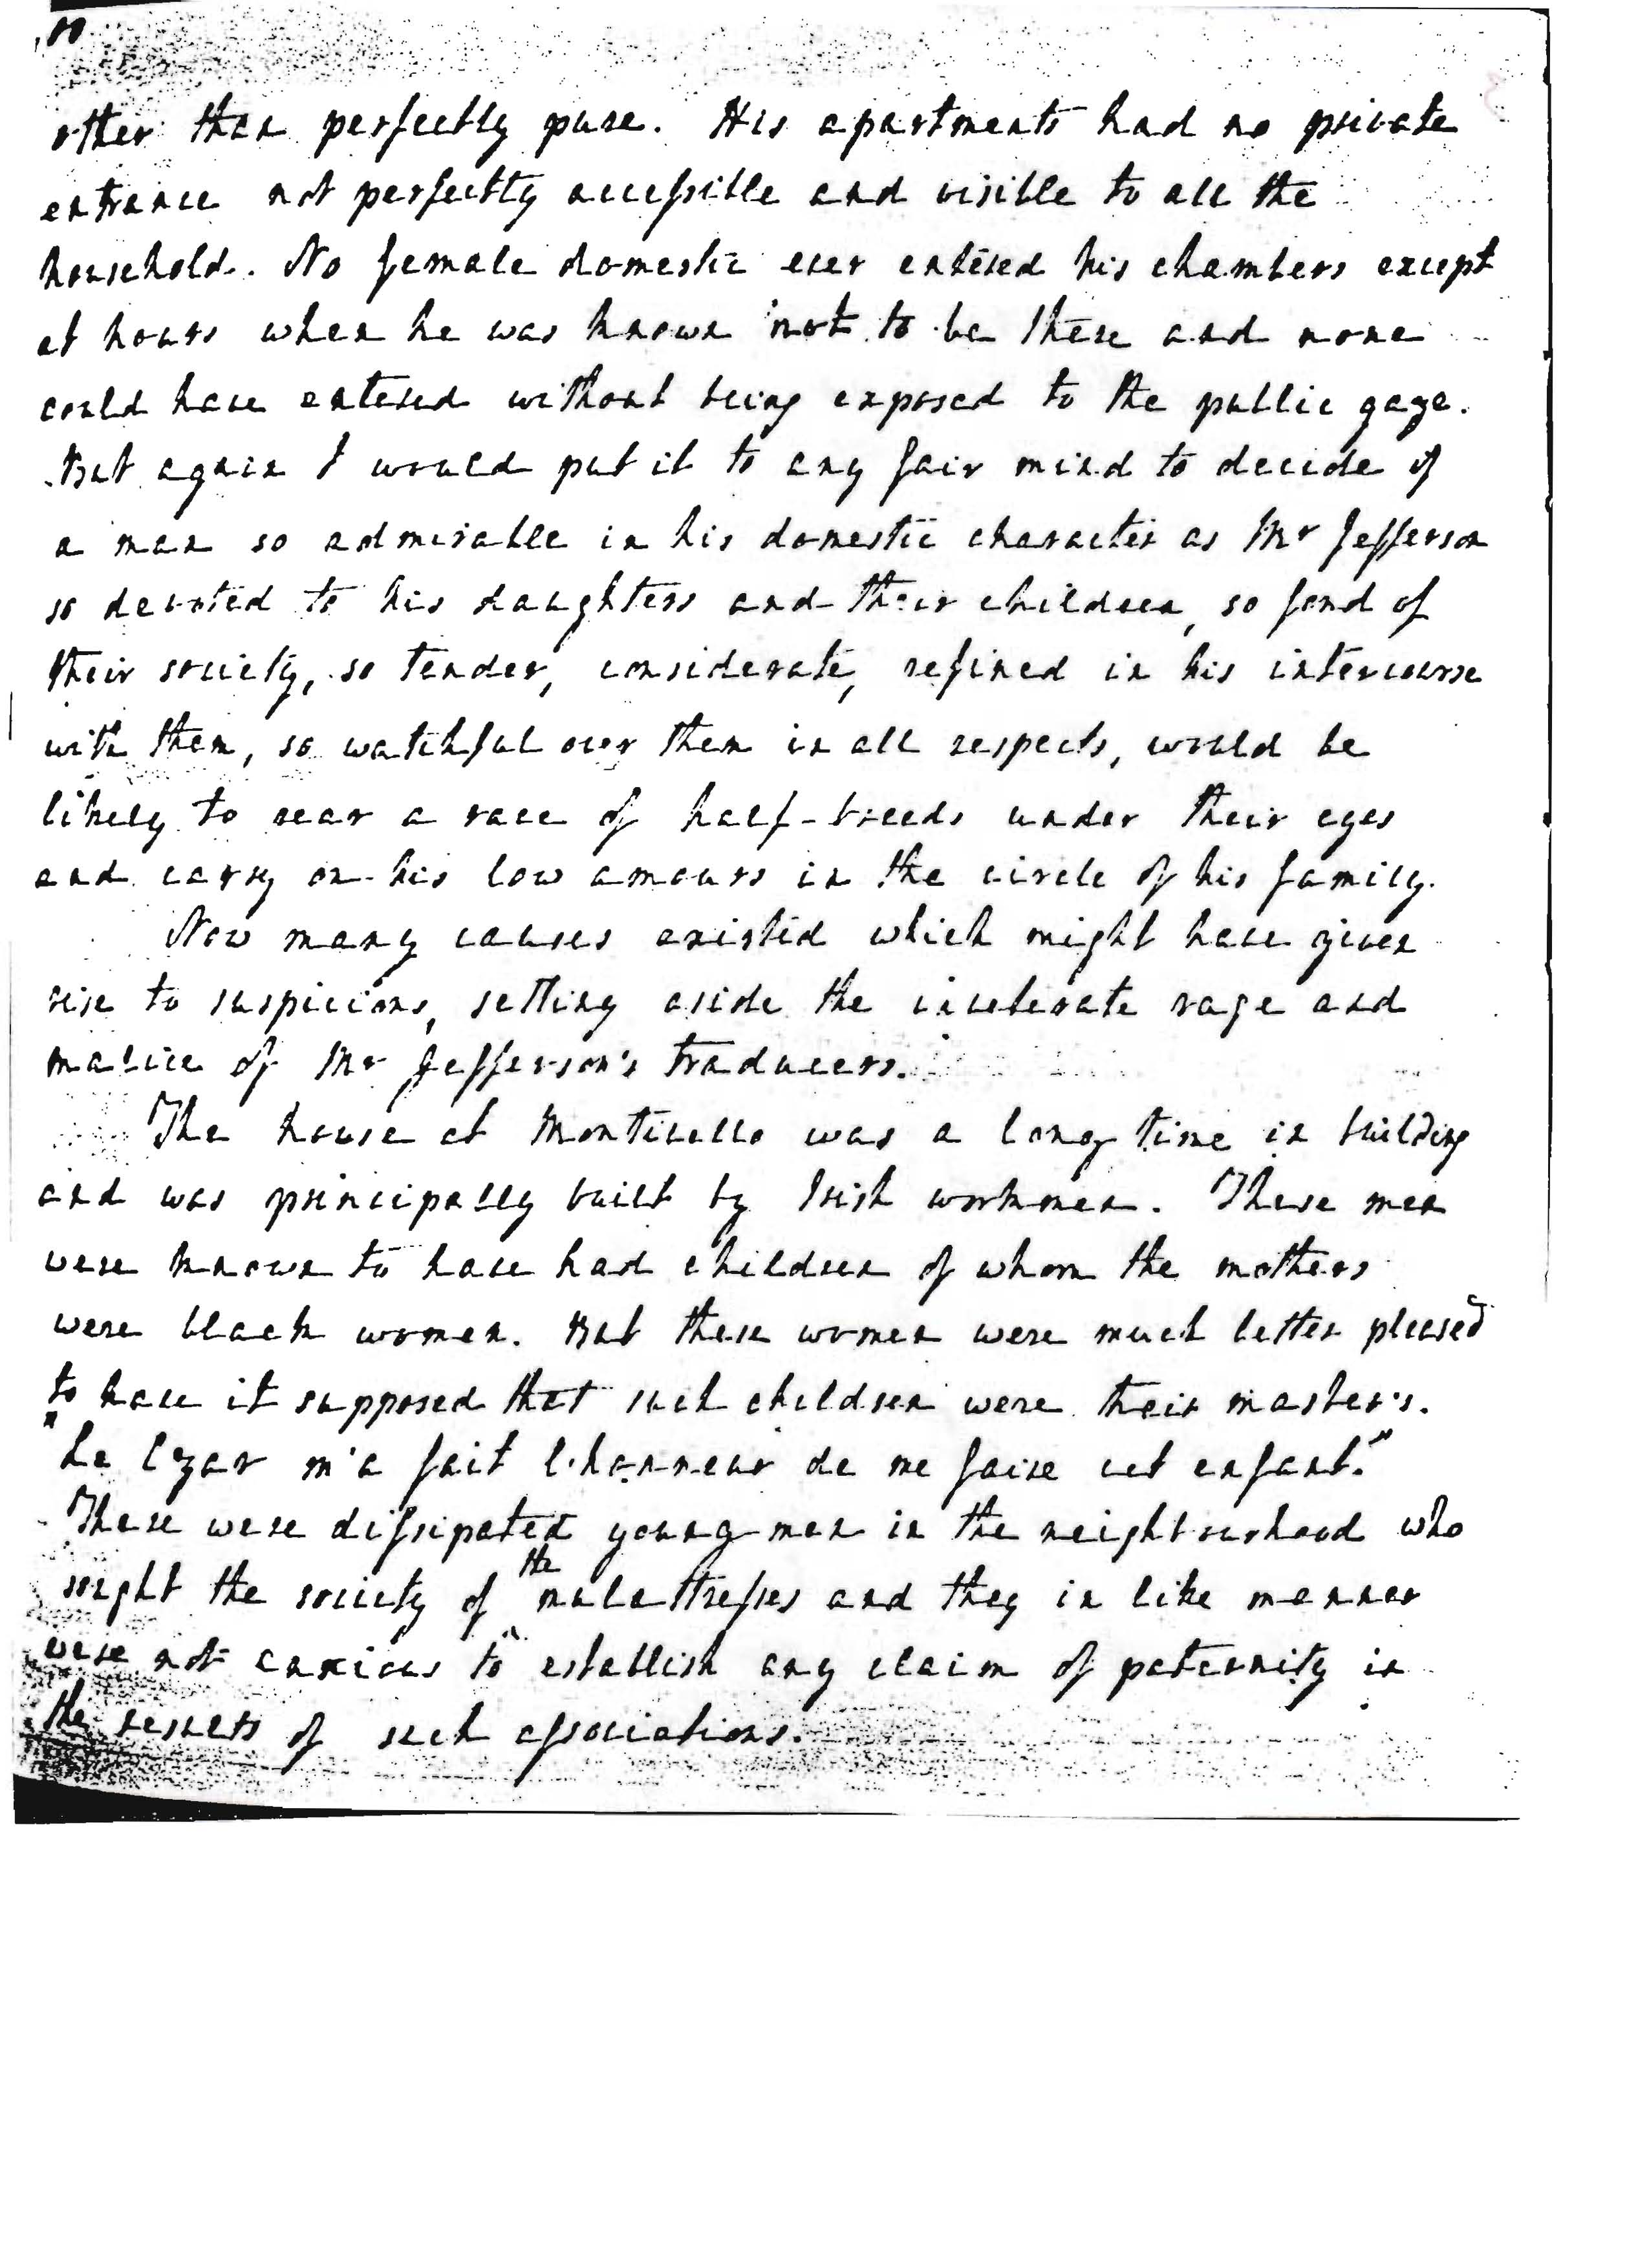 other than perfectly pure. His apartments had no private
entrance not perfectly accessible and visible to all the
household. No female domestic ever entered his chambers except
at hours when he was known not to be there and none
could have entered without being exposed to the public gaze.
But again I would put it to any fair mind to decide if
a man so admirable in his domestic character as Mr Jefferson
so devoted to his daughters and their children, so fond of
their society, so tender, considerate, refined in his intercourse
with them, so watchful over them in all respects, would be
likely to rear a race of half-breeds under their eyes
and carry on his low amours in the circle of his family.
Now many causes existed which might have given
rise to suspicions, setting aside the inveterate rage and
malice of Mr Jefferson's traducers.
The house at Monticello was a long time in building
and was principally built by Irish workmen. These men
were known to have had children of whom the mothers
were black women. But these women were much better pleased
to have it supposed that such children were their master's.
"Le Czar m'a fait l'honneur de me faire cet enfant."
There were dissipated young men in the neighbourhood who
sought the society of the mulattresses and they in like manner
were not anxious to establish any claim of paternity in
the results of such associations.